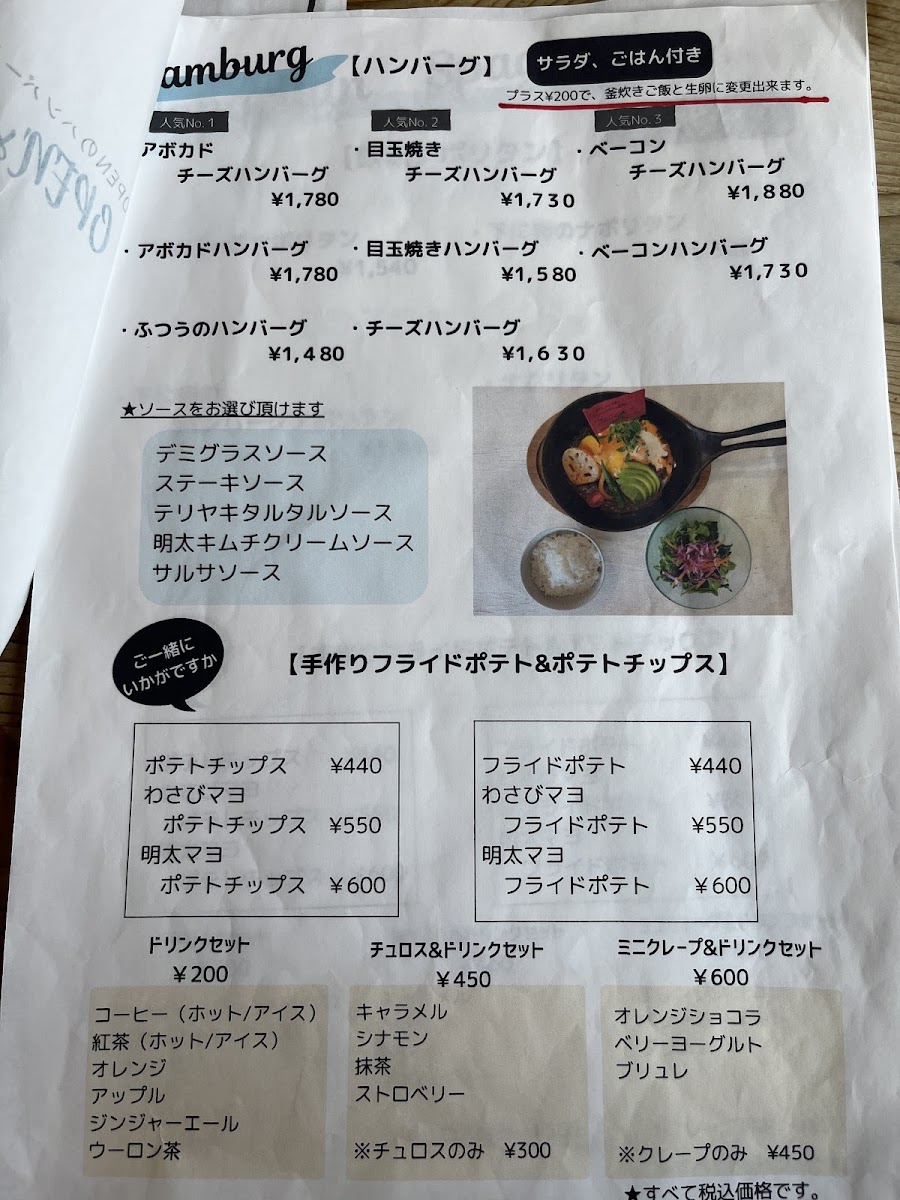 amburg
【ハンバーグ】
サラダ、ごはん付き
プラス¥200で、釜炊きご飯と生卵に変更出来ます。
人気No.1
アボカド
チーズハンバーグ
¥1,780
人気No.2
・目玉焼き
チーズハンバーグ
¥1,730
人気No.3
・ベーコン
チーズハンバーグ
¥1,880
・アボカドハンバーグ
¥1,780
・目玉焼きハンバーグ
¥1,580
・ベーコンハンバーグ
¥1,730
・ふつうのハンバーグ
¥1,480
・チーズハンバーグ
¥1,630
★ソースをお選び頂けます
デミグラスソース
ステーキソース
テリヤキタルタルソース
明太キムチクリームソース
サルサソース
ご一緒に
いかがですか
【手作りフライドポテト&ポテトチップス】
ポテトチップス ¥440
わさびマヨ
ポテトチップス ¥550
明太マヨ
ポテトチップス ¥600
フライドポテト ¥440
わさびマヨ
フライドポテト ¥550
明太マヨ
フライドポテト ¥600
ドリンクセット
¥200
コーヒー（ホット/アイス）
紅茶（ホット/アイス）
オレンジ
アップル
ジンジャーエール
ウーロン茶
チュロス&ドリンクセット
¥450
キャラメル
シナモン
抹茶
ストロベリー
※チュロスのみ ¥300
ミニクレープ&ドリンクセット
¥600
オレンジショコラ
ベリーヨーグルト
ブリュレ
※クレープのみ ¥450
★すべて税込価格です。